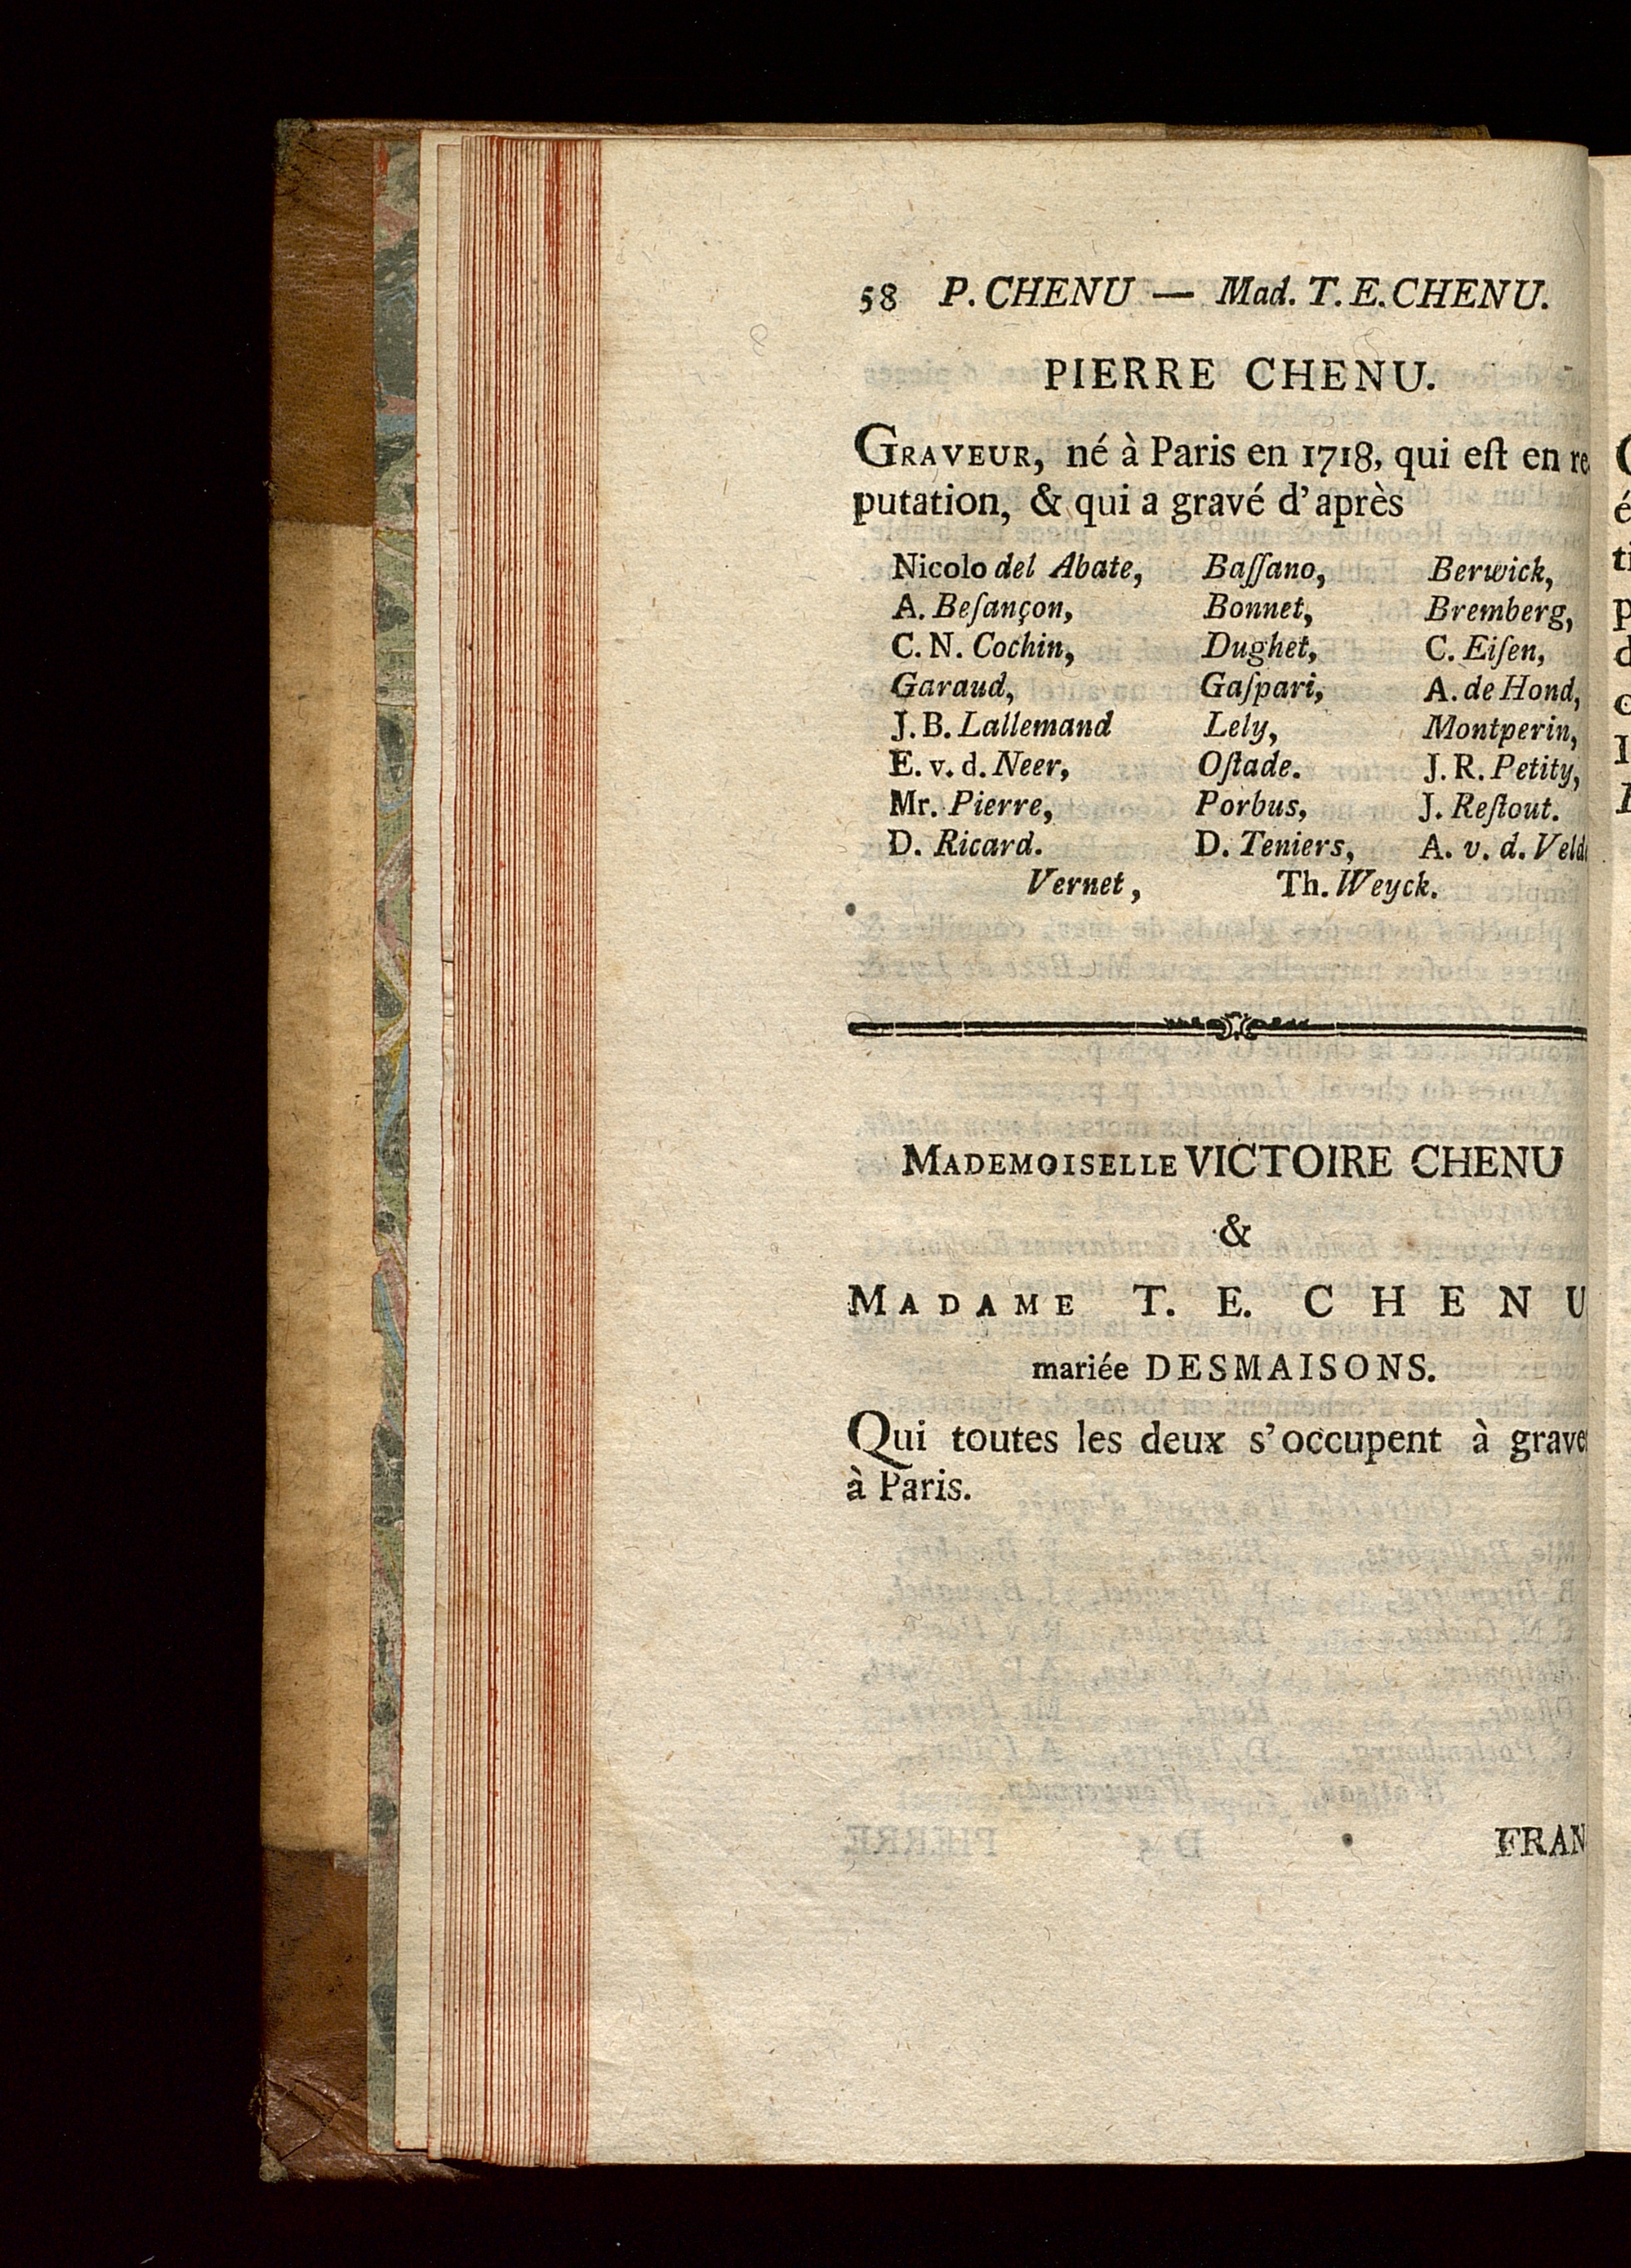 58 P. CHENU — Mad. T. E. CHENU.
PIERRE CHENU.
GRAVEUR, né à Paris en 1718, qui eſt en re
putation, & qui a gravé d'après
Nicolo del Abate, Baſſano, Berwick,
A. Beſançon, Bonnet, Bremberg,
C. N. Cochin, Dughet, C. Eiſen,
Garaud, Gaſpari, A. de Hond,
J. B. Lallemand Lely, Montperin,
E. v. d. Neer, Oſtade. J. R. Petity,
Mr. Pierre, Porbus, J. Reſtout.
D. Ricard. D. Teniers, A. v. d. Veld
Vernet, Th. Weyck.
MADEMOISELLE VICTOIRE CHENU
&
MADAME T. E. CHENU
mariée DESMAISONS.
Qui toutes les deux s'occupent à grave
à Paris.
FRAN